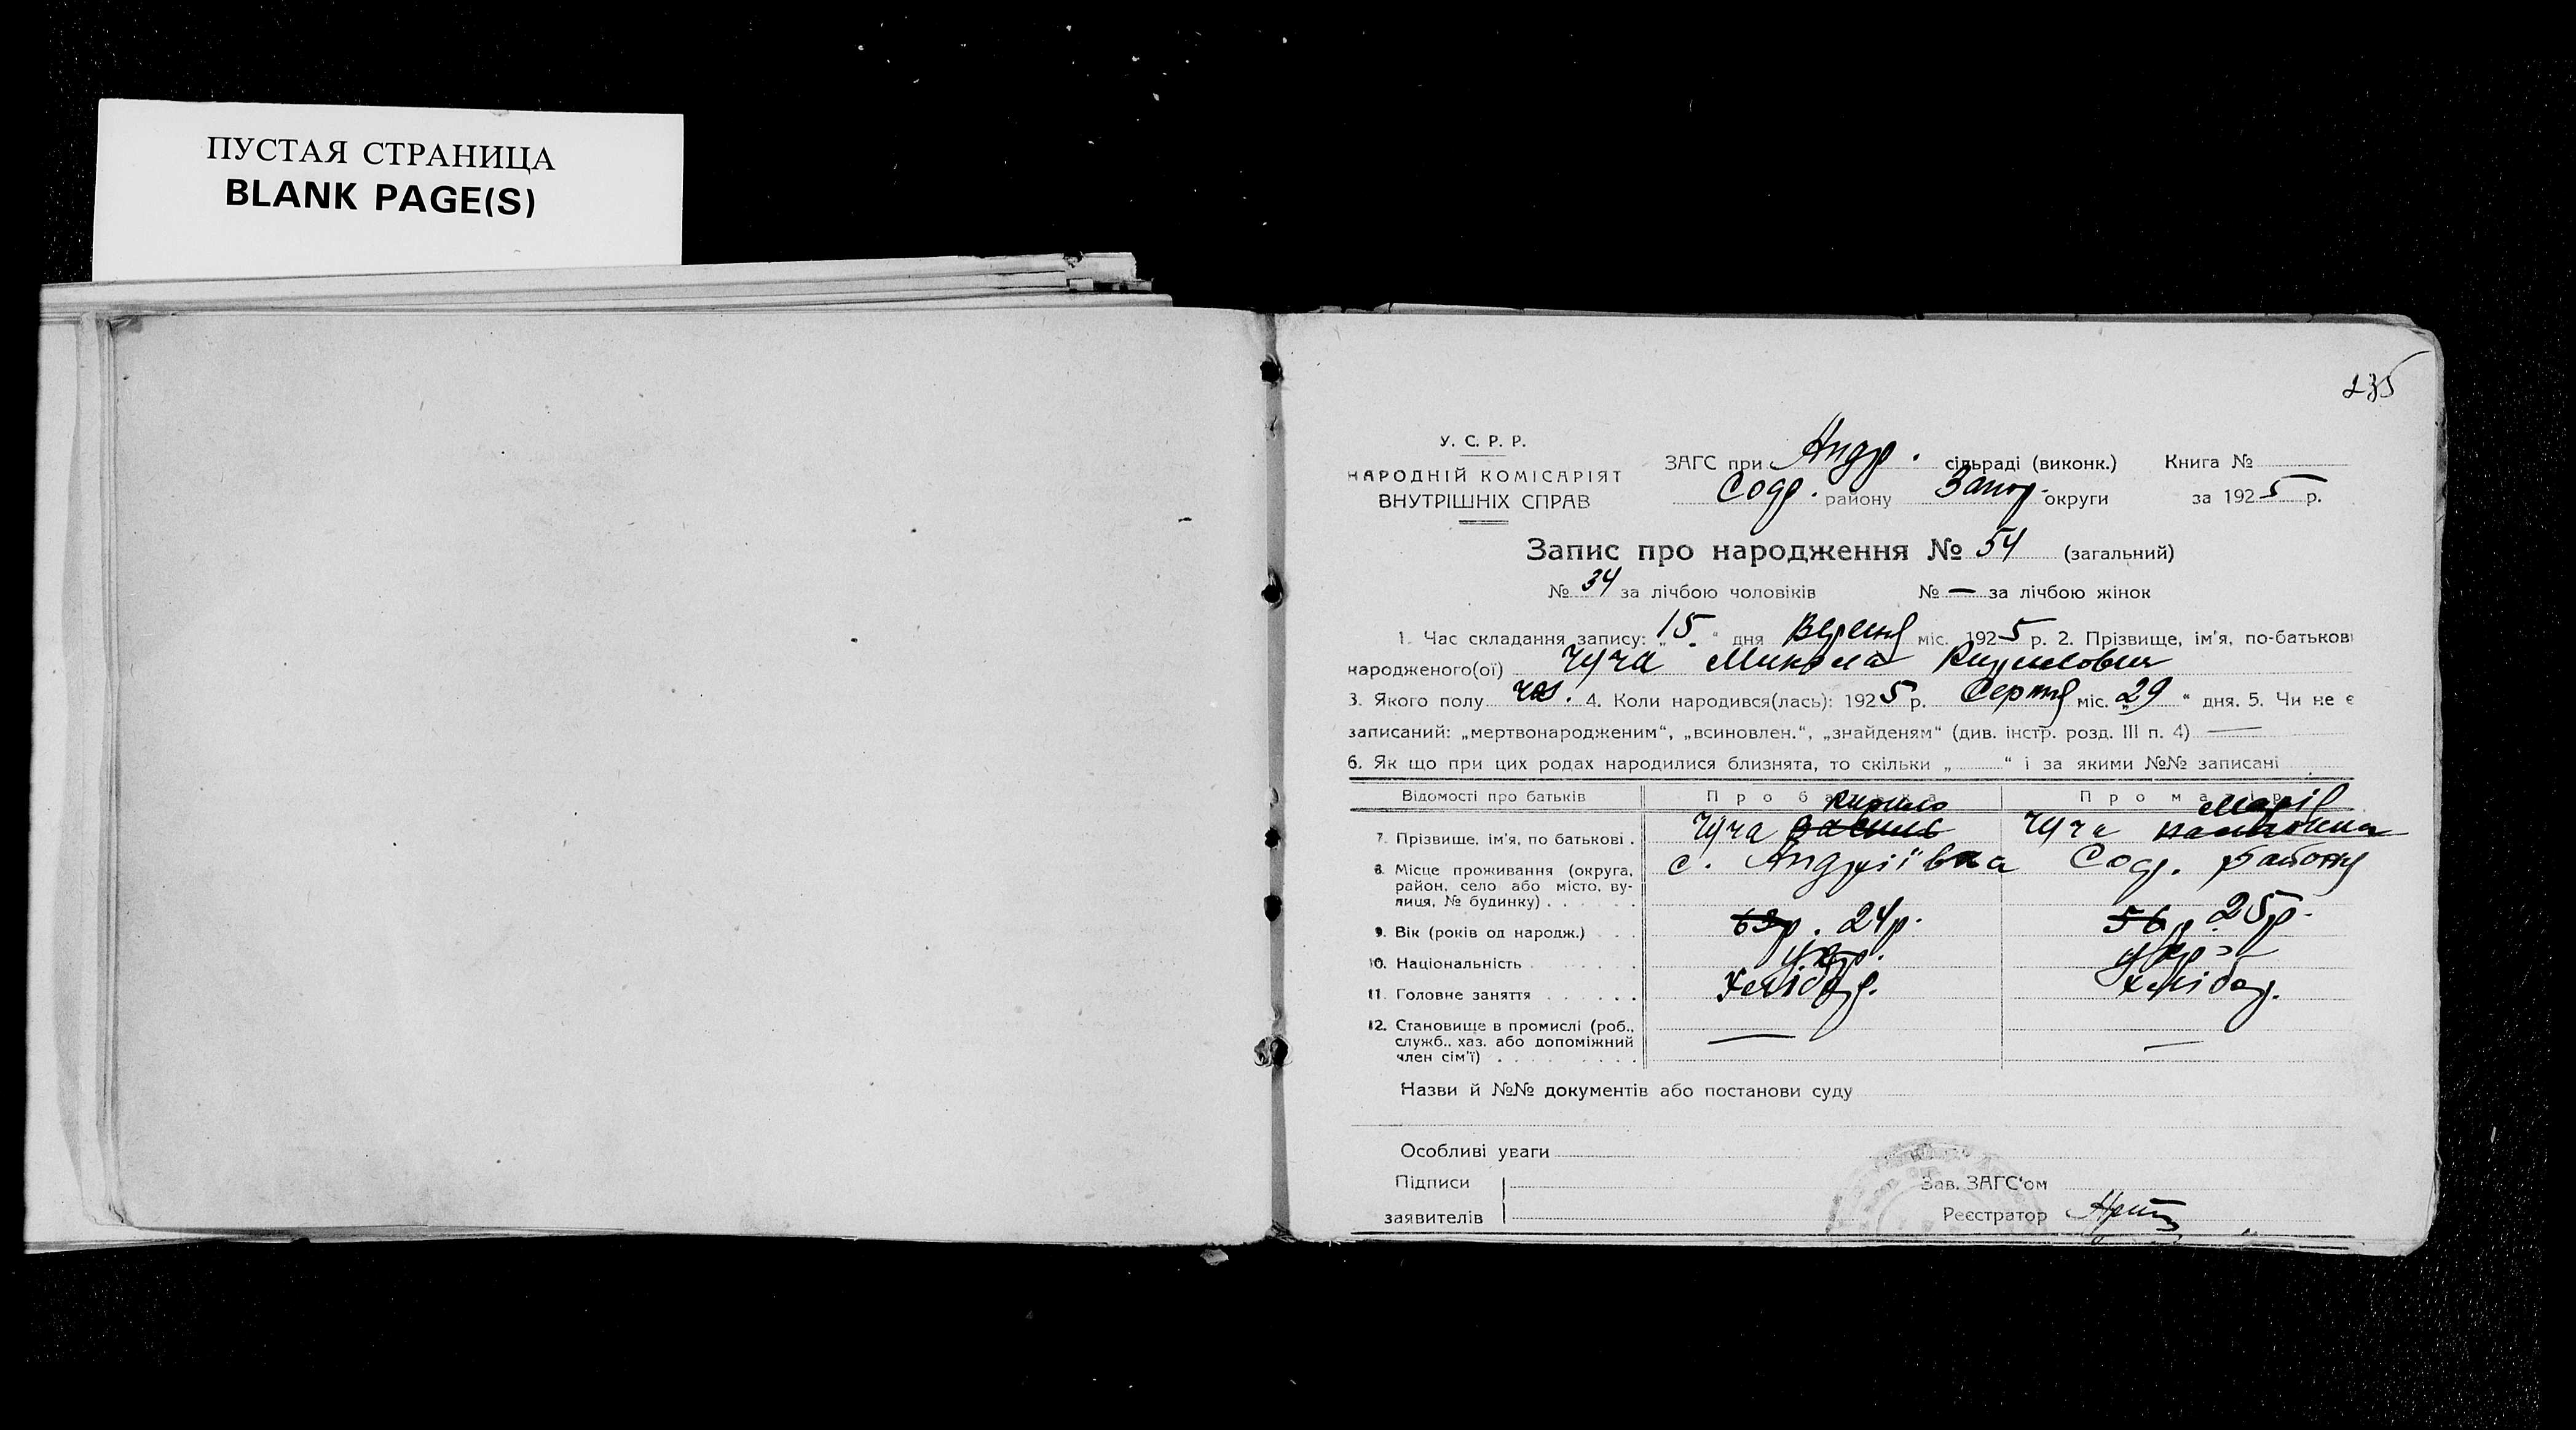 ПУСТАЯ СТРАНИЦА
BLANK PAGE(S)
235
У. С. Р. Р.
НАРОДНІЙ КОМІСАРІЯТ
ВНУТРІШНІХ СПРАВ
ЗАГС при Андр. сільраді (виконк.) Книга №
Соф. району Запор. округи за 1925 р.
Запис про народження № 54 (загальний)
№ 34 за лічбою чоловіків № — за лічбою жінок
1. Час складання запису: „15“ дня Вересня міс. 1925 р. 2. Прізвище, ім'я, по-батькові
народженого(ої) Чуча Микола Кирилович
3. Якого полу чол. 4. Коли народився(лась): 1925 р. Серпня міс. „29“ дня. 5. Чи не є
записаний: „мертвонародженим“, „всиновлен.“, „знайденям“ (див. інстр. розд. III п. 4) —
6. Як що при цих родах народилися близнята, то скільки „ “ і за якими №№ записані
Відомості про батьків Про батька Про матір
Кирило Марія
7. Прізвище, ім'я, по батькові . Чуча Василь Чуча
8. Місце проживання (округа, район, село або місто, вулиця, № будинку) с. Андріївка Соф. району
9. Вік (років од народж.) 63р. 24р. 56р. 25р.
10. Національність укр. укр.
11. Головне заняття Хлібор. Хлібор.
12. Становище в промислі (роб., — —
служб., хаз. або допоміжний
член сім'ї)
Назви й №№ документів або постанови суду
Особливі уваги
Підписи Зав. ЗАГС'ом
заявителів Реєстратор